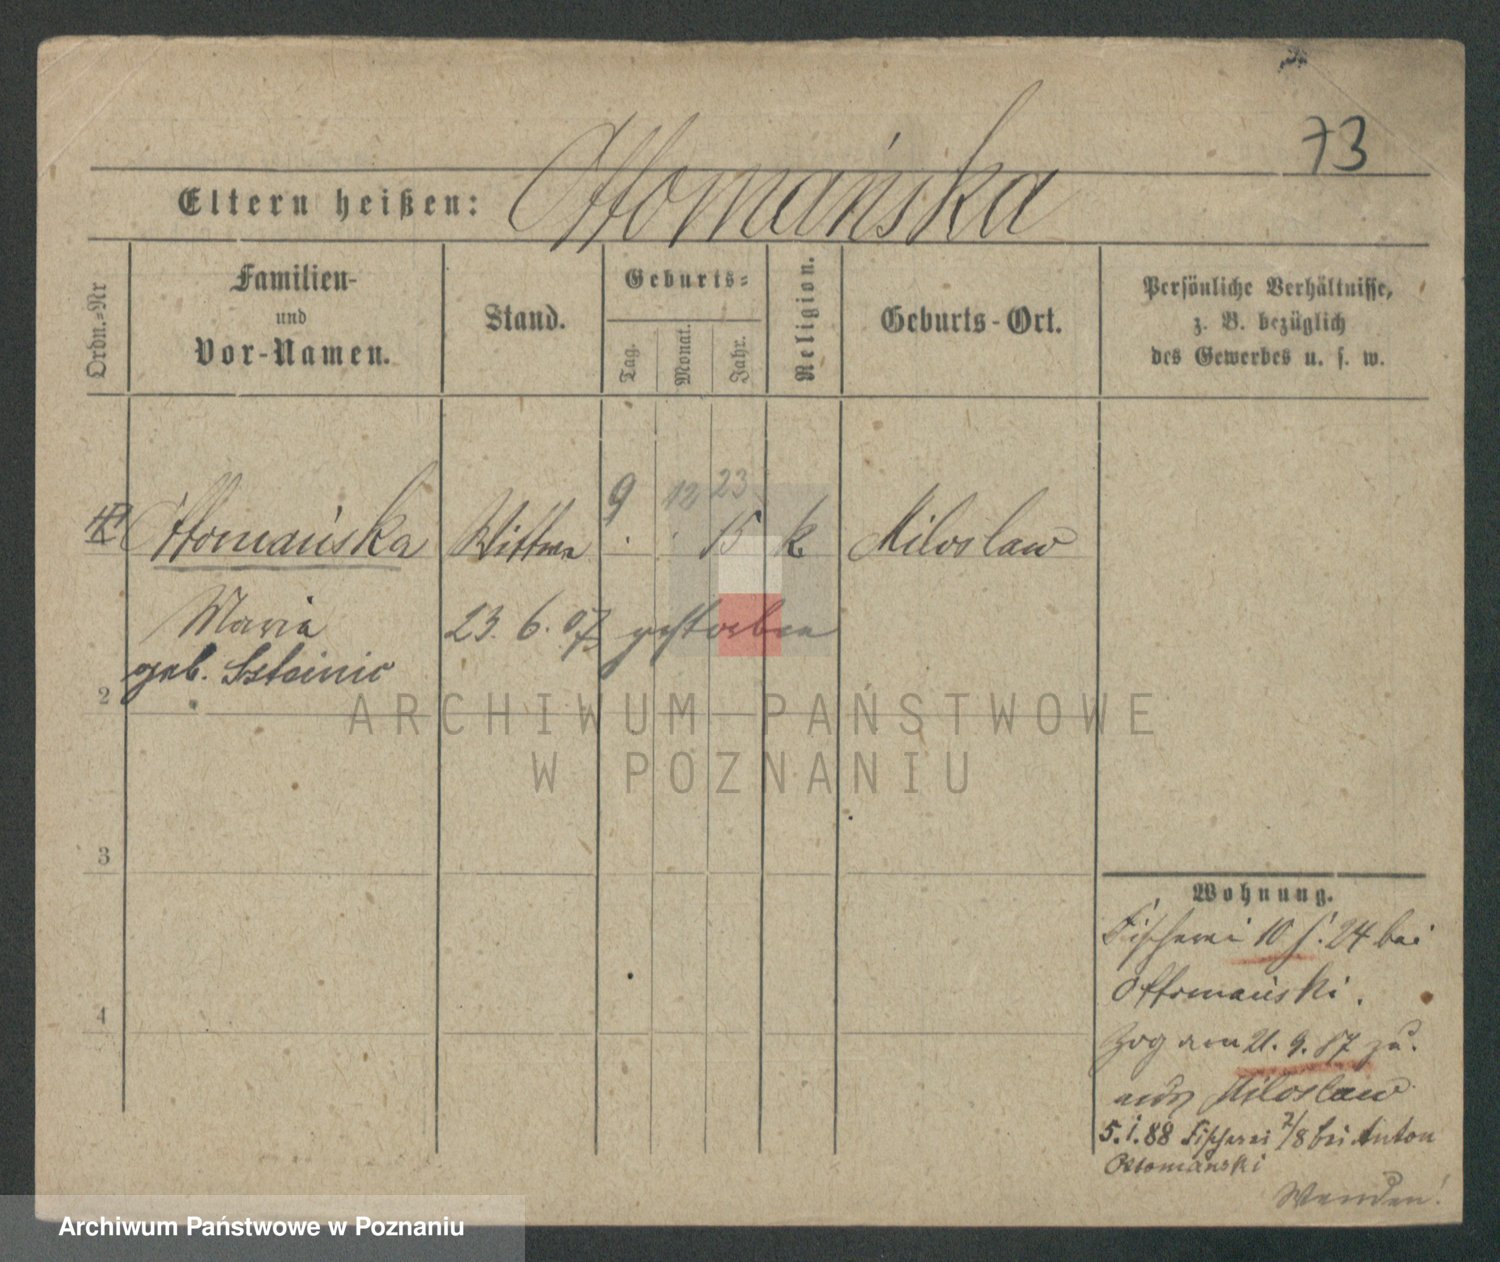 73
Eltern heißen: Ottomańska
Ordn.-Nr
Familien-
und
Vor-Namen.
Stand.
Geburts-
Tag.
Monat.
Jahr.
Religion.
Geburts-Ort.
Persönliche Verhältnisse,
z. B. bezüglich
des Gewerbes u. s. w.
9 12 23
Ottomańska Wittwe 15 k. Miloslaw
Maria 23. 6. 07 gestorben
geb.
2
3
4
ARCHIWUM PAŃSTWOWE
W POZNANIU
Wohnung.
Fischerei 10 f. 24 bei
Ottomański.
Zog am 21. 9. 87 zu.
aus Miloslaw
5.1.88 Fischerei 7/8 bei Anton
Ottomański
Wenden!
Archiwum Państwowe w Poznaniu